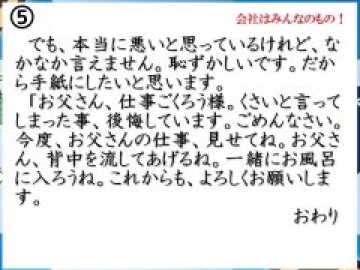 ⑤
会社はみんなのもの！
でも、本当に悪いと思っているけれど、な
かなか言えません。恥ずかしいです。だか
ら手紙にしたいと思います。
「お父さん、仕事ごくろう様。くさいと言って
しまった事、後悔しています。ごめんなさい。
今度、お父さんの仕事、見せてね。お父さ
ん、背中を流してあげるね。一緒にお風呂
に入ろうね。これからも、よろしくお願いしま
す。
おわり